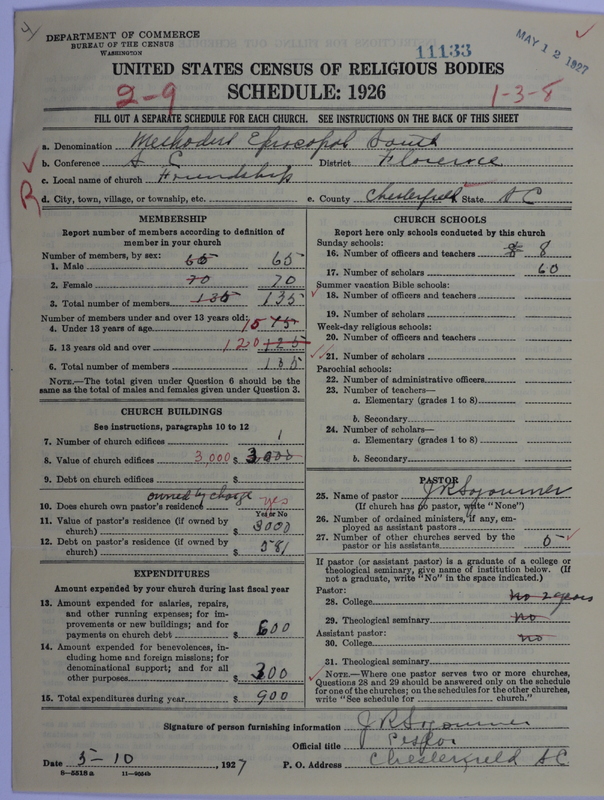 DEPARTMENT OF COMMERCE
BUREAU OF THE CENSUS
WASHINGTON
11133
MAY 12 1927
UNITED STATES CENSUS OF RELIGIOUS BODIES
2-9 SCHEDULE: 1926 1-3-8
FILL OUT A SEPARATE SCHEDULE FOR EACH CHURCH. SEE INSTRUCTIONS ON THE BACK OF THIS SHEET
a. Denomination Methodist Episcopal South
b. Conference S C District Florence
c. Local name of church Friendship
R
d. City, town, village, or township, etc. e. County Chesterfield State S C
MEMBERSHIP
Report number of members according to definition of
member in your church
Number of members, by sex:
1. Male 65 65
2. Female 70 70
3. Total number of members 135 135
Number of members under and over 13 years old:
4. Under 13 years of age 15
5. 13 years old and over 120 125
6. Total number of members 135
NOTE.—The total given under Question 6 should be
same as the total of males and females given under Question 3.
CHURCH BUILDINGS
See instructions, paragraphs 10 to 12
7. Number of church edifices 1
8. Value of church edifices 3,000 $ 3,000
9. Debt on church edifices $
owned by charge
10. Does church own pastor's residence yes
Yes or No
11. Value of pastor's residence (if owned by
church) $ 3000
12. Debt on pastor's residence (if owned by
church) $ 581
EXPENDITURES
Amount expended by your church during last fiscal year
13. Amount expended for salaries, repairs,
and other running expenses; for im-
provements or new buildings; and for
payments on church debt $ 600
14. Amount expended for benevolences, in-
cluding home and foreign missions; for
denominational support; and for all
other purposes $ 300
15. Total expenditures during year $ 900
CHURCH SCHOOLS
Report here only schools conducted by this church
Sunday schools:
16. Number of officers and teachers 8
17. Number of scholars 60
Summer vacation Bible schools:
18. Number of officers and teachers
19. Number of scholars
Week-day religious schools:
20. Number of officers and teachers
21. Number of scholars
Parochial schools:
22. Number of administrative officers
23. Number of teachers—
a. Elementary (grades 1 to 8)
b. Secondary
24. Number of scholars—
a. Elementary (grades 1 to 8)
b. Secondary
PASTOR
25. Name of pastor J R Sojourner
(If church has no pastor, write "None")
26. Number of ordained ministers, if any, em-
ployed as assistant pastors
27. Number of other churches served by the
pastor or his assistants 5
If pastor (or assistant pastor) is a graduate of a college or
theological seminary, give name of institution below. (If
not a graduate, write "No" in the space indicated.)
Pastor:
28. College no 2 years
29. Theological seminary no
Assistant pastor:
30. College no
31. Theological seminary
NOTE.—Where one pastor serves two or more churches,
Questions 28 and 29 should be answered only on the schedule
for one of the churches; on the schedules for the other churches,
write "See schedule for church."
Signature of person furnishing information J R Sojourner
Official title Pastor
Date 5-10, 1927 P. O. Address Chesterfield S C
8—5518a 11—9554b